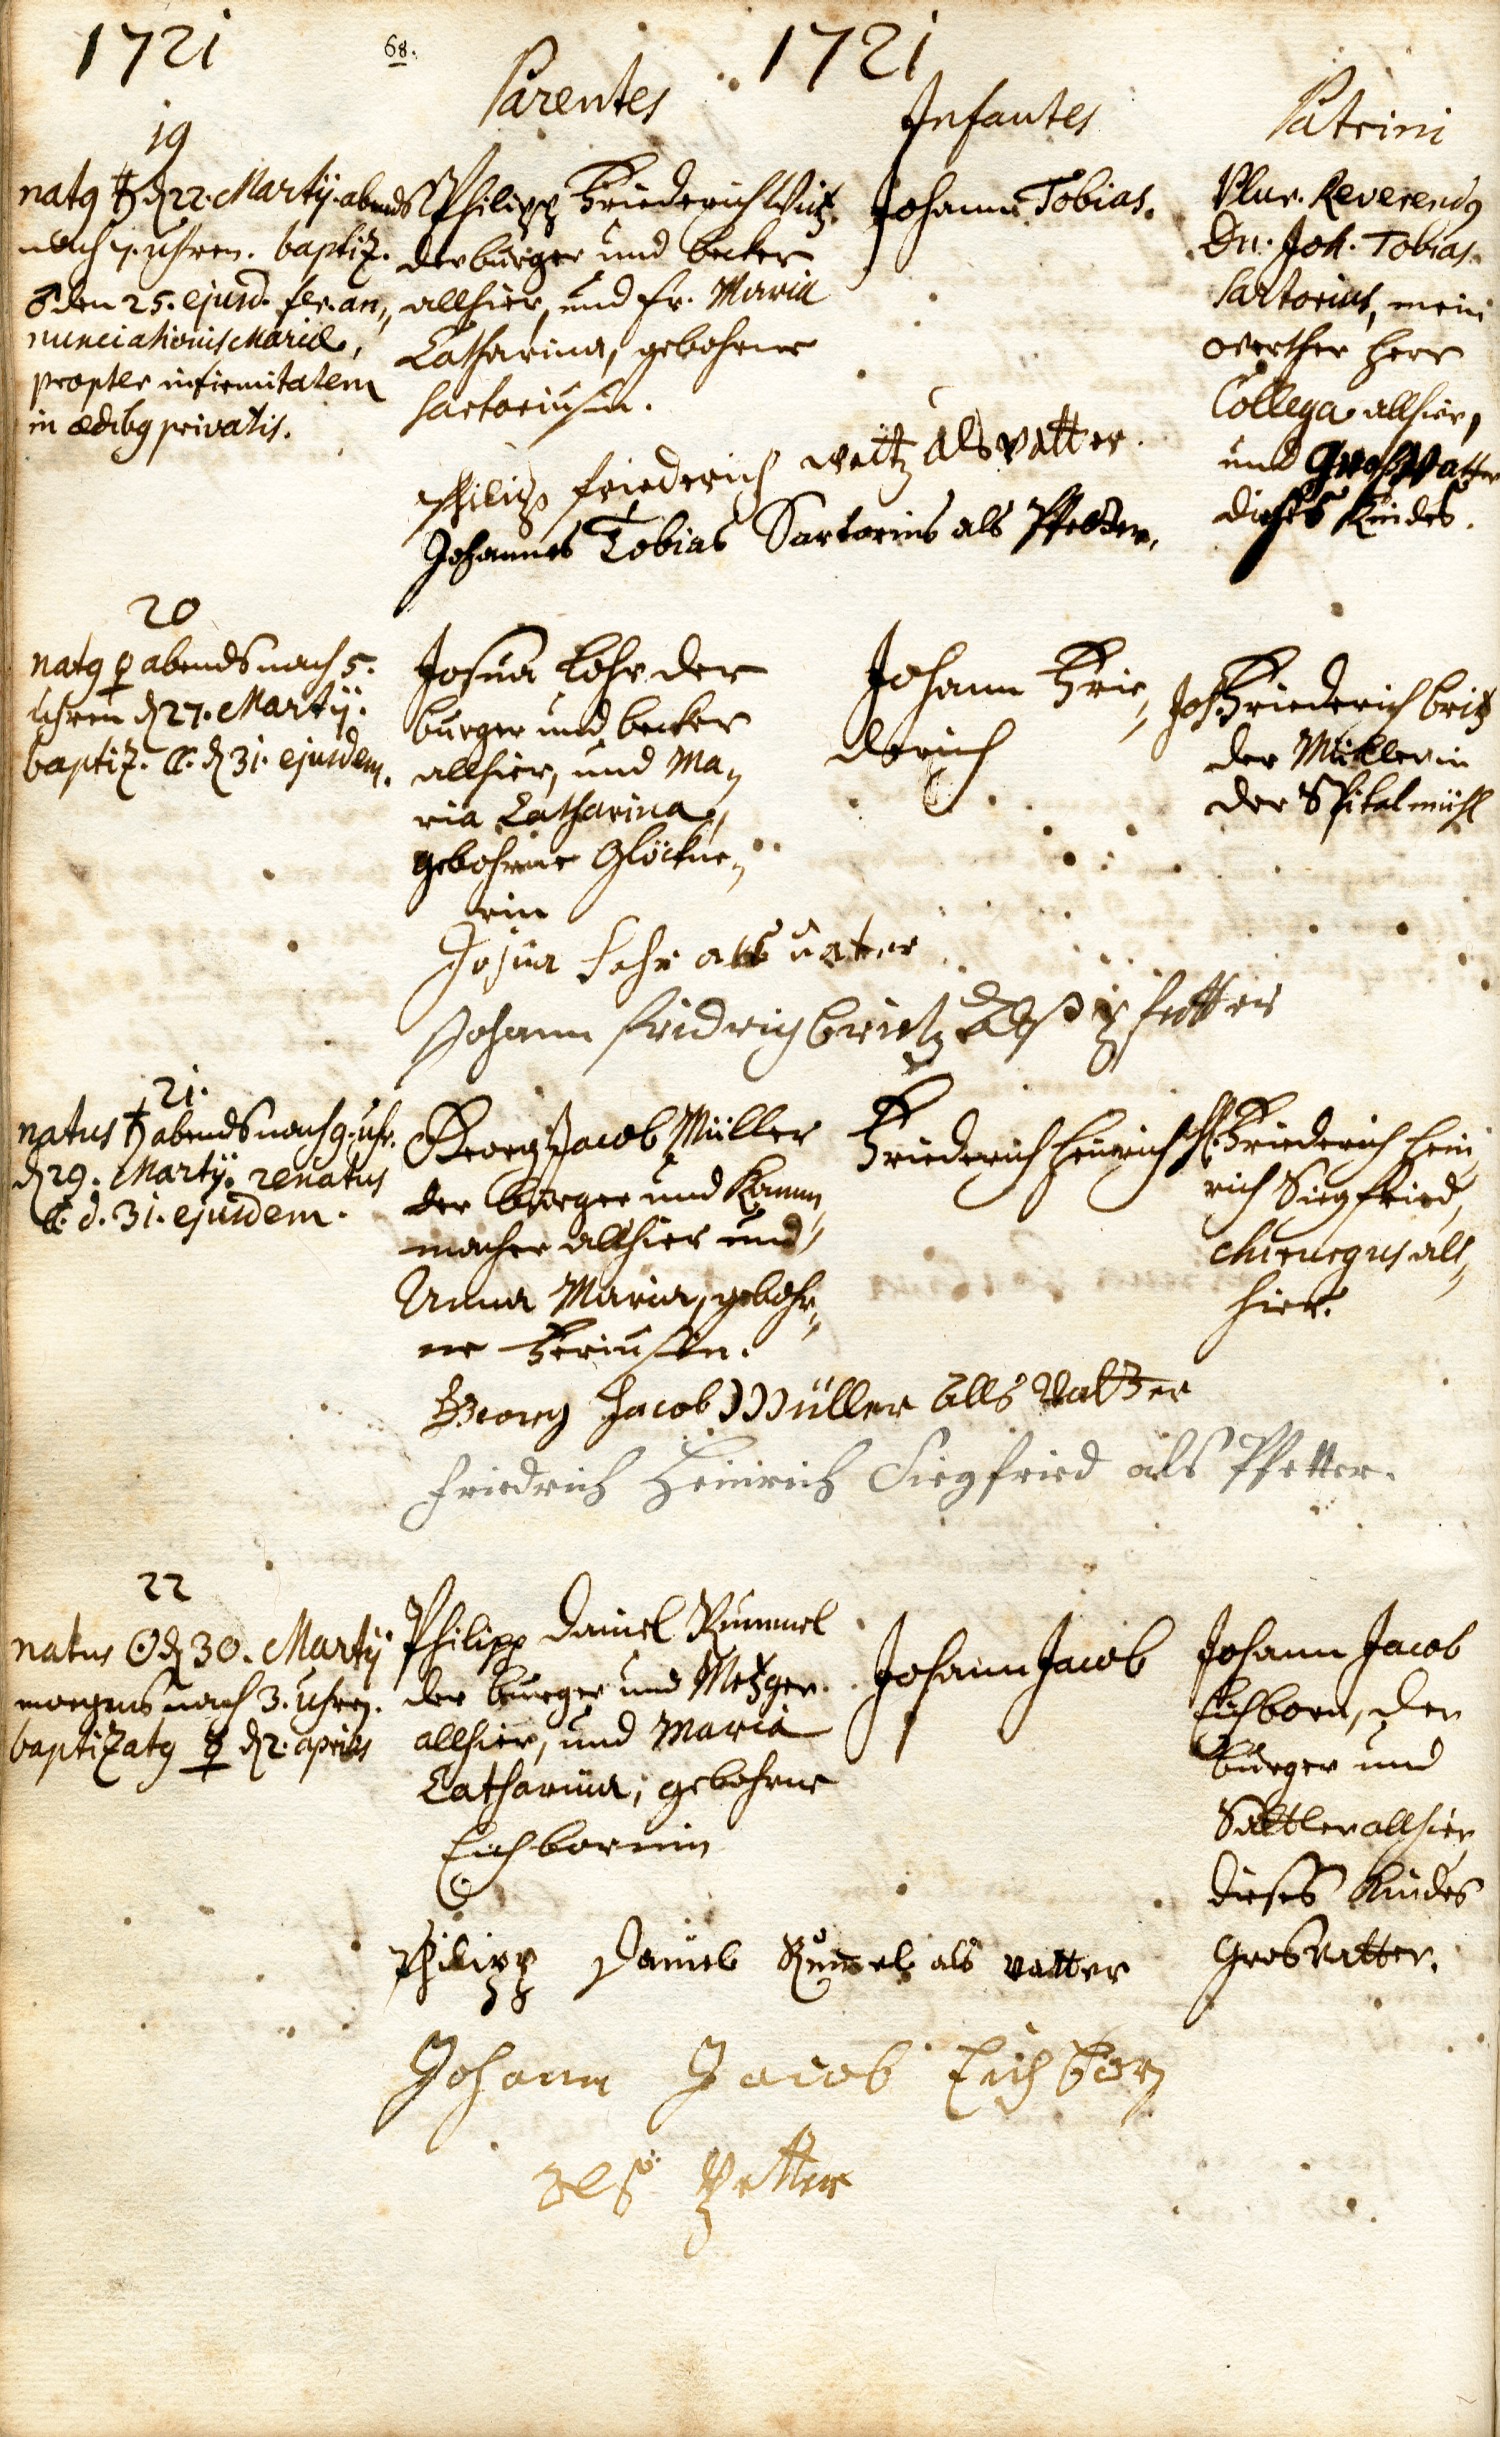 1721
68.
1721
Parentes
Infantes
Patrini
19
natg ♄ d 22. Martij. abends
nach 7. uhren. baptiz.
♂ den 25. ejusd. fer. an„
nunciationis Mariæ,
propter infirmitatem
in ædibg privatis.
Philipp Friederich Weitz.
der burger und becker
allhier, und fr. Maria
Catharina, gebohrne
Sartoriusin.
Johann Tobias.
Plur. Reverendg
Dn. Joh. Tobias
Sartorius, mein
werther Herr
Collega allhier,
und Großvatter
dieses Kindes.
Philips friederich weitz als vatter.
Johannes Tobias Sartorius als Pfetter.
20
natg ♀ abends nach 5.
uhren d 27. Martij.
baptiz. ☾. d 31. ejusdem.
Josua Lohr der
burger und becker
allhier, und Ma„
ria Catharina,
gebohrne Glöckne„
rin
Johann Frie„
derich
Joh Friederich britz
der Müller in
der Spitalmühl
Josua Lohr als vater
Johann fridrich brietz alß pfetter
21.
natus ♄ abends nach 9. uhr.
d 29. Martij. renatus
☾. d. 31. ejusdem.
Georg Jacob Müller
der burger und Kamm„
macher allhier und
Anna Maria, gebohr„
ne
Friederich Heinrich
H. Friederich Hein„
rich Siegfried,
chirurgus all„
hier.
Georg Jacob Müller alls Vatter
Friedrich Heinrich Siegfried als Pfetter.
22
natus ☉ d 30. Martij
morgens nach 3. uhren.
baptizatg ☿ d 2. aprilis
Philipp Daniel Rummel
der burger und Metzger
allhier, und Maria
Catharina, gebohrne
Eichbornin
Johann Jacob
Johann Jacob
Eichborn, der
burger und
Sattler allhier
dieses Kindes
Grosvatter.
Philipp Daniel Rummel als vatter
Johann Jacob Eichborn
als Petter